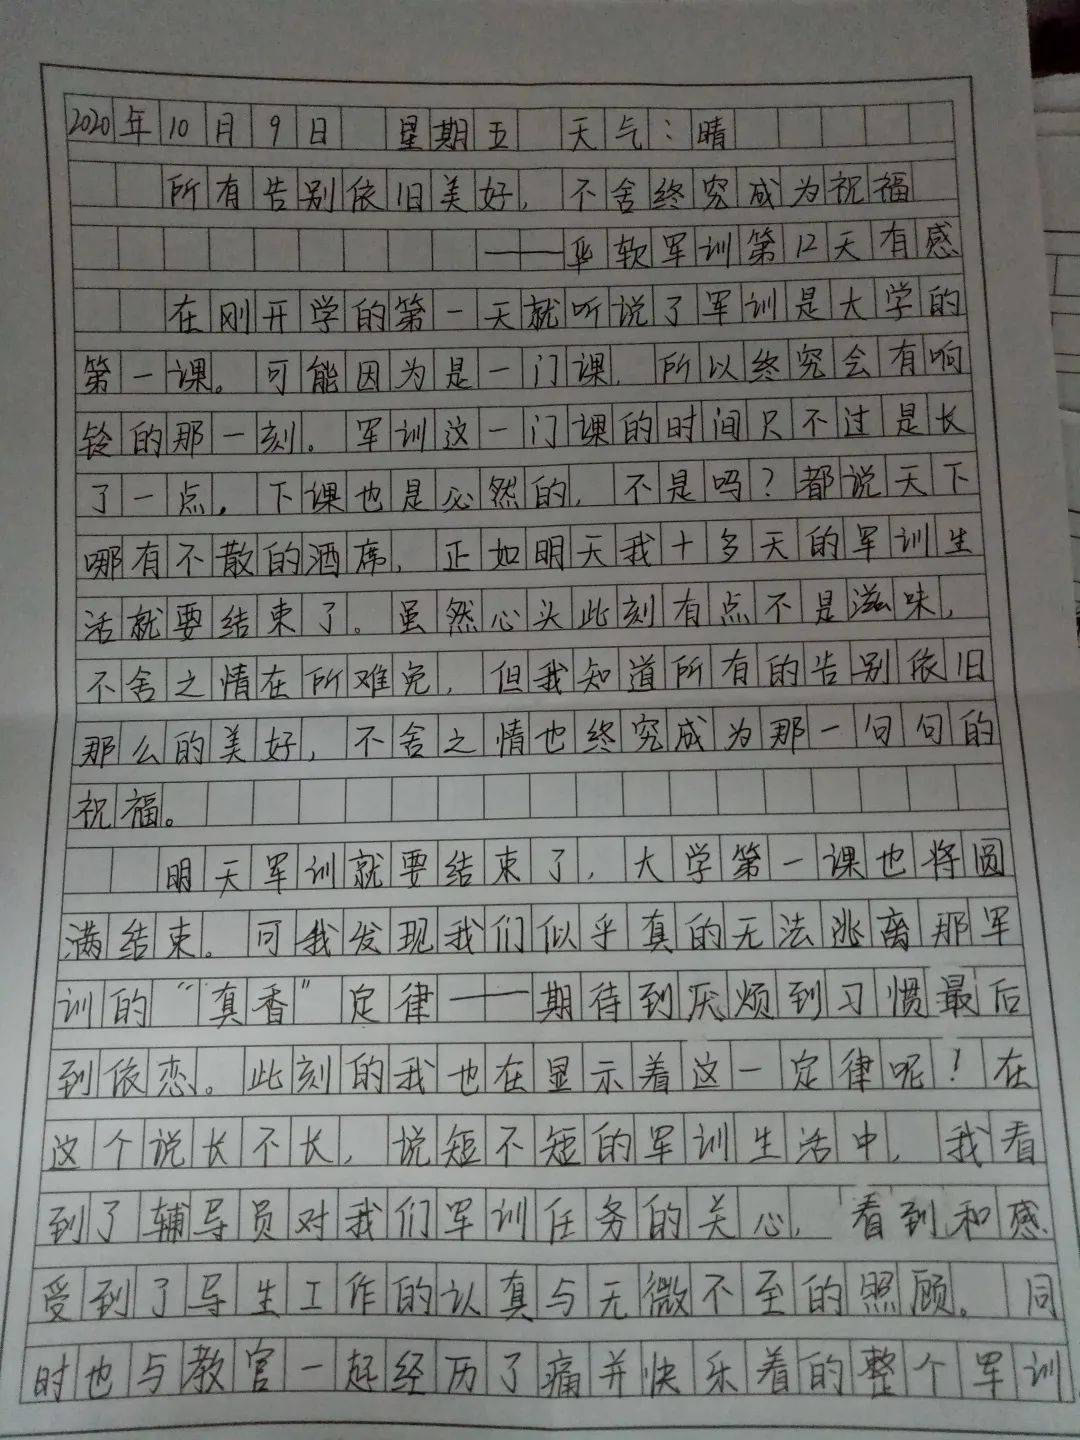 2020年10月9日 星期五 天气：晴
所有告别依旧美好，不舍终究成为祝福
——华软军训第12天有感
在刚开学的第一天就听说了军训是大学的
第一课。可能因为是一门课，所以终究会有响
铃的那一刻。军训这一门课的时间只不过是长
了一点，下课也是必然的，不是吗？都说天下
哪有不散的酒席，正如明天我十多天的军训生
活就要结束了。虽然心头此刻有点不是滋味，
不舍之情在所难免，但我知道所有的告别依旧
那么的美好，不舍之情也终究成为那一句句的
祝福。
明天军训就要结束了，大学第一课也将圆
满结束。可我发现我们似乎真的无法逃离那军
训的“真香”定律——期待到厌烦到习惯最后
到依恋。此刻的我也在显示着这一定律呢！在
这个说长不长，说短不短的军训生活中，我看
到了辅导员对我们军训任务的关心，看到和感
受到了导生工作的认真与无微不至的照顾。同
时也与教官一起经历了痛并快乐着的整个军训